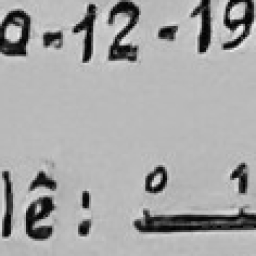 -12-19
lê: 0 1